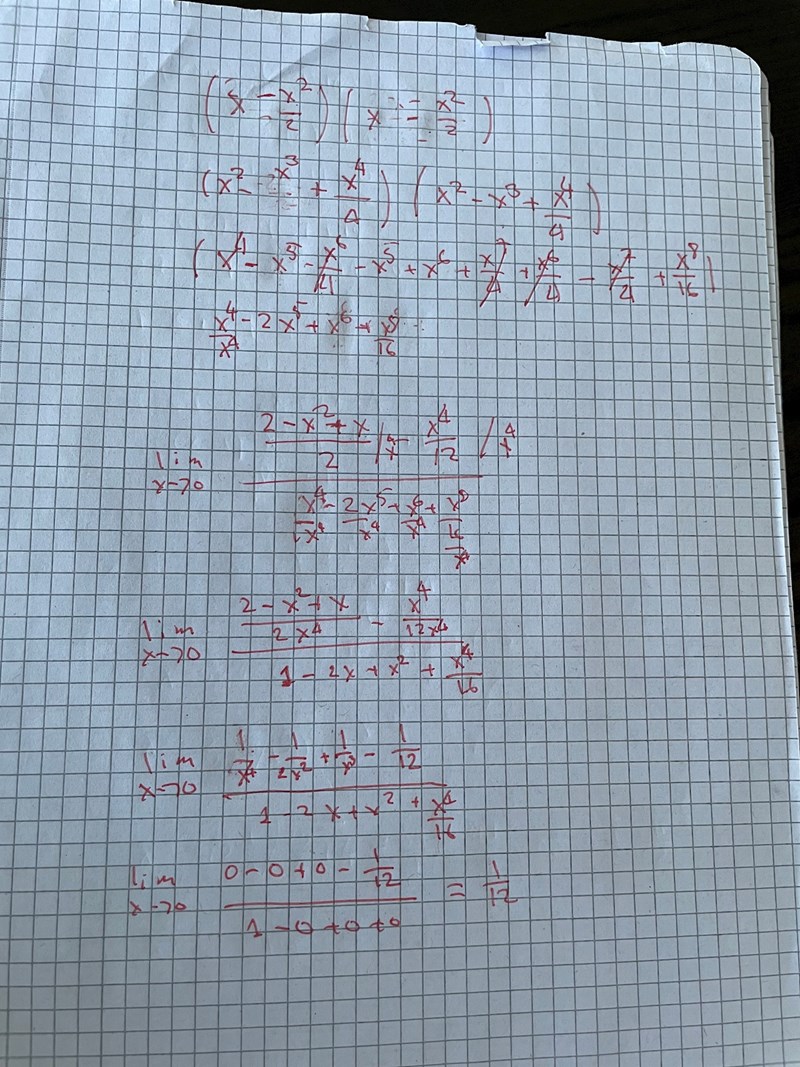 (x - x²/2) (x - x²/2)
(x² - x³ + x⁴/4) (x² - x³ + x⁴/4)
(x⁴ - x⁵ - x⁶/4 - x⁵ + x⁶ + x⁷/4 + x⁶/4 - x⁷/4 + x⁸/16)
x⁴/x⁴ - 2x⁵ + x⁶ + x⁸/16
lim x→0 ((2 - x² + x)/2 /x⁴ - x⁴/12 /x⁴) / (x⁴/x⁴ - 2x⁵/x⁴ + x⁶/x⁴ + x⁸/16/x⁴)
lim x→0 ((2 - x² + x)/2x⁴ - x⁴/12x⁴) / (1 - 2x + x² + x⁴/16)
lim x→0 (1/x⁴ - 1/2x² + 1/x³ - 1/12) / (1 - 2x + x² + x⁴/16)
lim x→0 (0 - 0 + 0 - 1/12) / (1 - 0 + 0 + 0) = 1/12